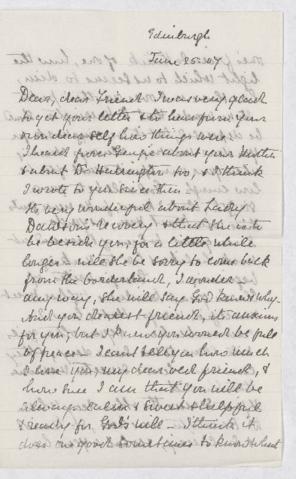 Edinburgh
June 25. 07
Dear, dear Friend I was very glad
to get your letter & to hear from your
own dear self how things were.
I heard from about your Mother
& about Dr. Huntington too, & I think
I wrote to you since then
It's very wonderful about Lady
recovery & that she is to
be beside you, for a little while
longer. Will she be sorry to come back
from the borderland, I wonder
any way, she will say God knows why.
And you dearest friend, it's anxious
for you; but I know you would be full
of peace. I can't tell you how much
I love you, my dear old friend, &
how sure I am that you will be
always calm & sweet & helpful
& ready for God's will – I think it
does us good sometimes to know what